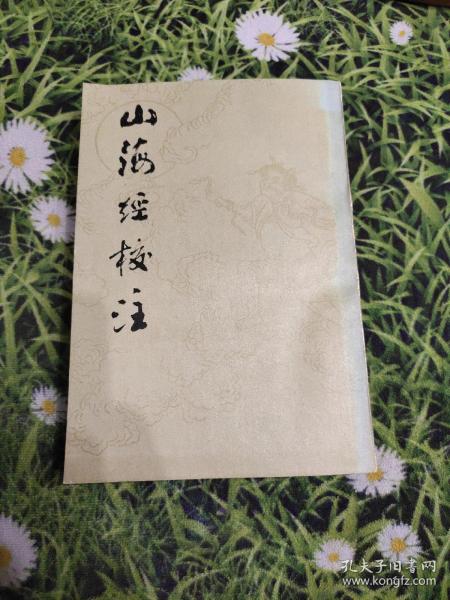 山海經校注
孔夫子旧书网
www.kongfz.com